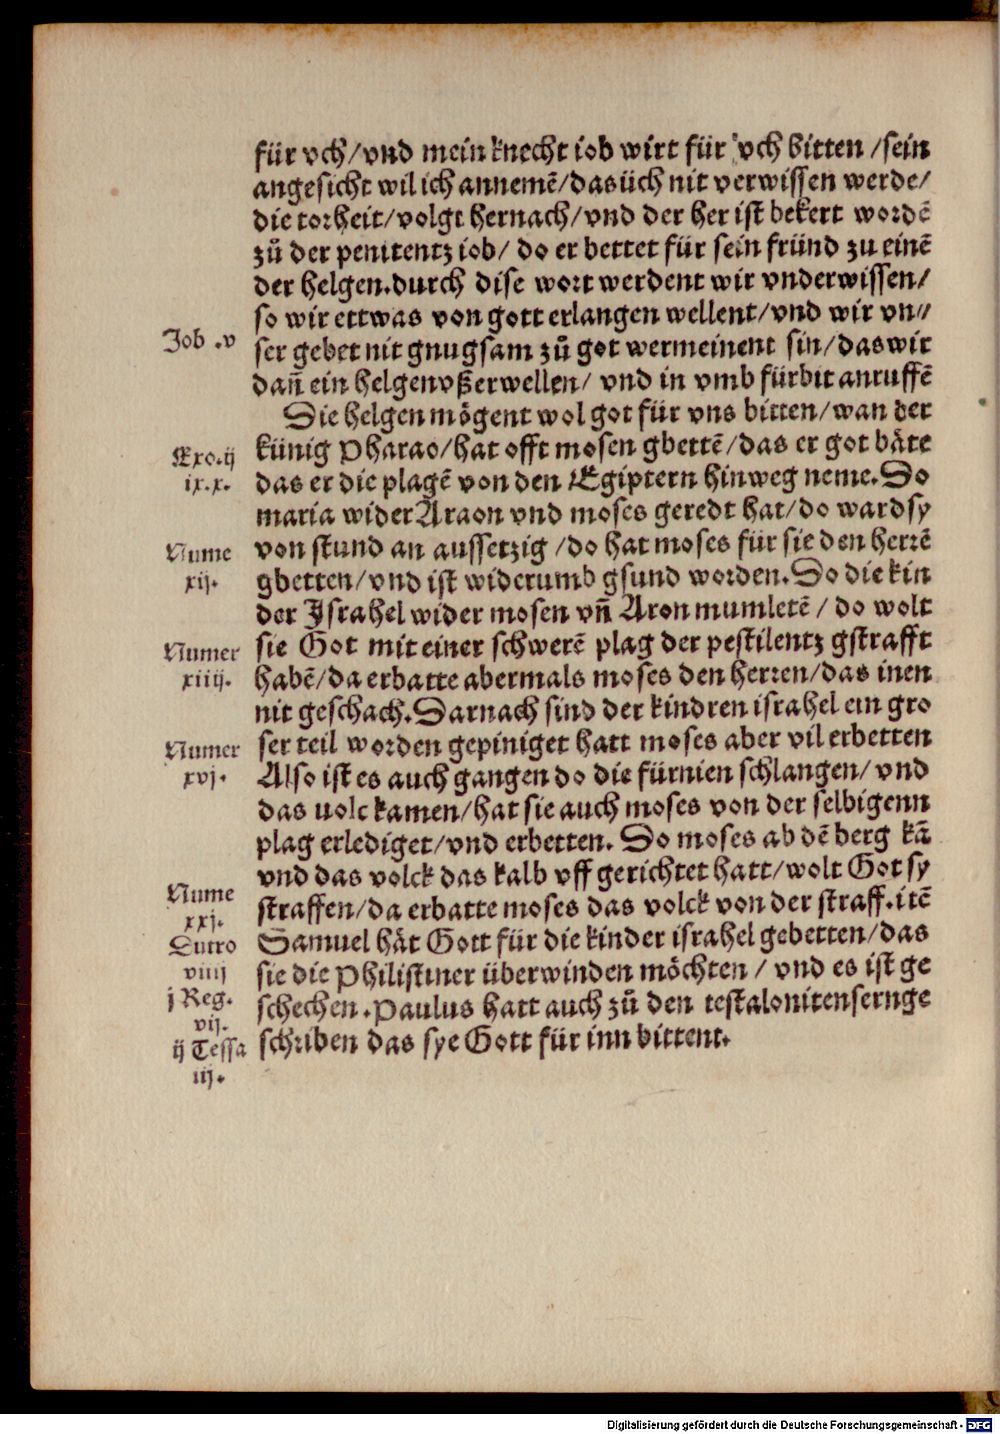 für vch/vnd mein knecht iob wirt für vch bitten /sein
angesicht wil ich annemē/das üch nit verwissen werde/
die torheit/volgt hernach/vnd der her ist bekert wordē
zů der penitentz iob/ do er bettet für sein fründ zu einē
der helgen.durch dise wort werdent wir vnderwissen/
so wir ettwas von gott erlangen wellent/vnd wir vn//
Job .v
ser gebet nit gnugsam zů got wermeinent sin/das wir
dañ ein helgen vßerwellen/ vnd in vmb fürbit anruffē
Die helgen mögent wol got für vns bitten/wan der
Exo.ij
künig Pharao/hat offt mosen gbettē/das er got bäte
ix.x.
das er die plagē von den Egiptern hinweg neme.Do
maria wider Araon vnd moses geredt hat/do ward sy
Nume
von stund an aussetzig /do hat moses für sie den herrē
xij.
gbetten/vnd ist widerumb gsund worden.Do die kin
der Israhel wider mosen vñ Aron mumletē / do wolt
Numer
sie Got mit einer schwerē plag der pestilentz gstrafft
xiiij.
habē/da erbatte abermals moses den herren/das inen
nit geschach.Darnach sind der kindren israhel ein gro
Numer
ser teil worden gepiniget hatt moses aber vil erbetten
xvj.
Also ist es auch gangen do die fürnien schlangen/ vnd
das uolc kamen/hat sie auch moses von der selbigenn
plag erlediget/vnd erbetten. Do moses ab dē berg kā
vnd das volck das kalb vff gerichtet hatt/wolt Got sy
Nume
straffen/da erbatte moses das volck von der straff.itē
xxj.
Dutro
Samuel hät Gott für die kinder israhel gebetten/das
viiij
sie die Philistiner überwinden möchten / vnd es ist ge
j Reg.
schechen.Paulus hatt auch zů den testalonitensernge
vij.
ij Tessa
schriben das sye Gott für inn bittent.
iij.
Digitalisierung gefördert durch die Deutsche Forschungsgemeinschaft - DFG